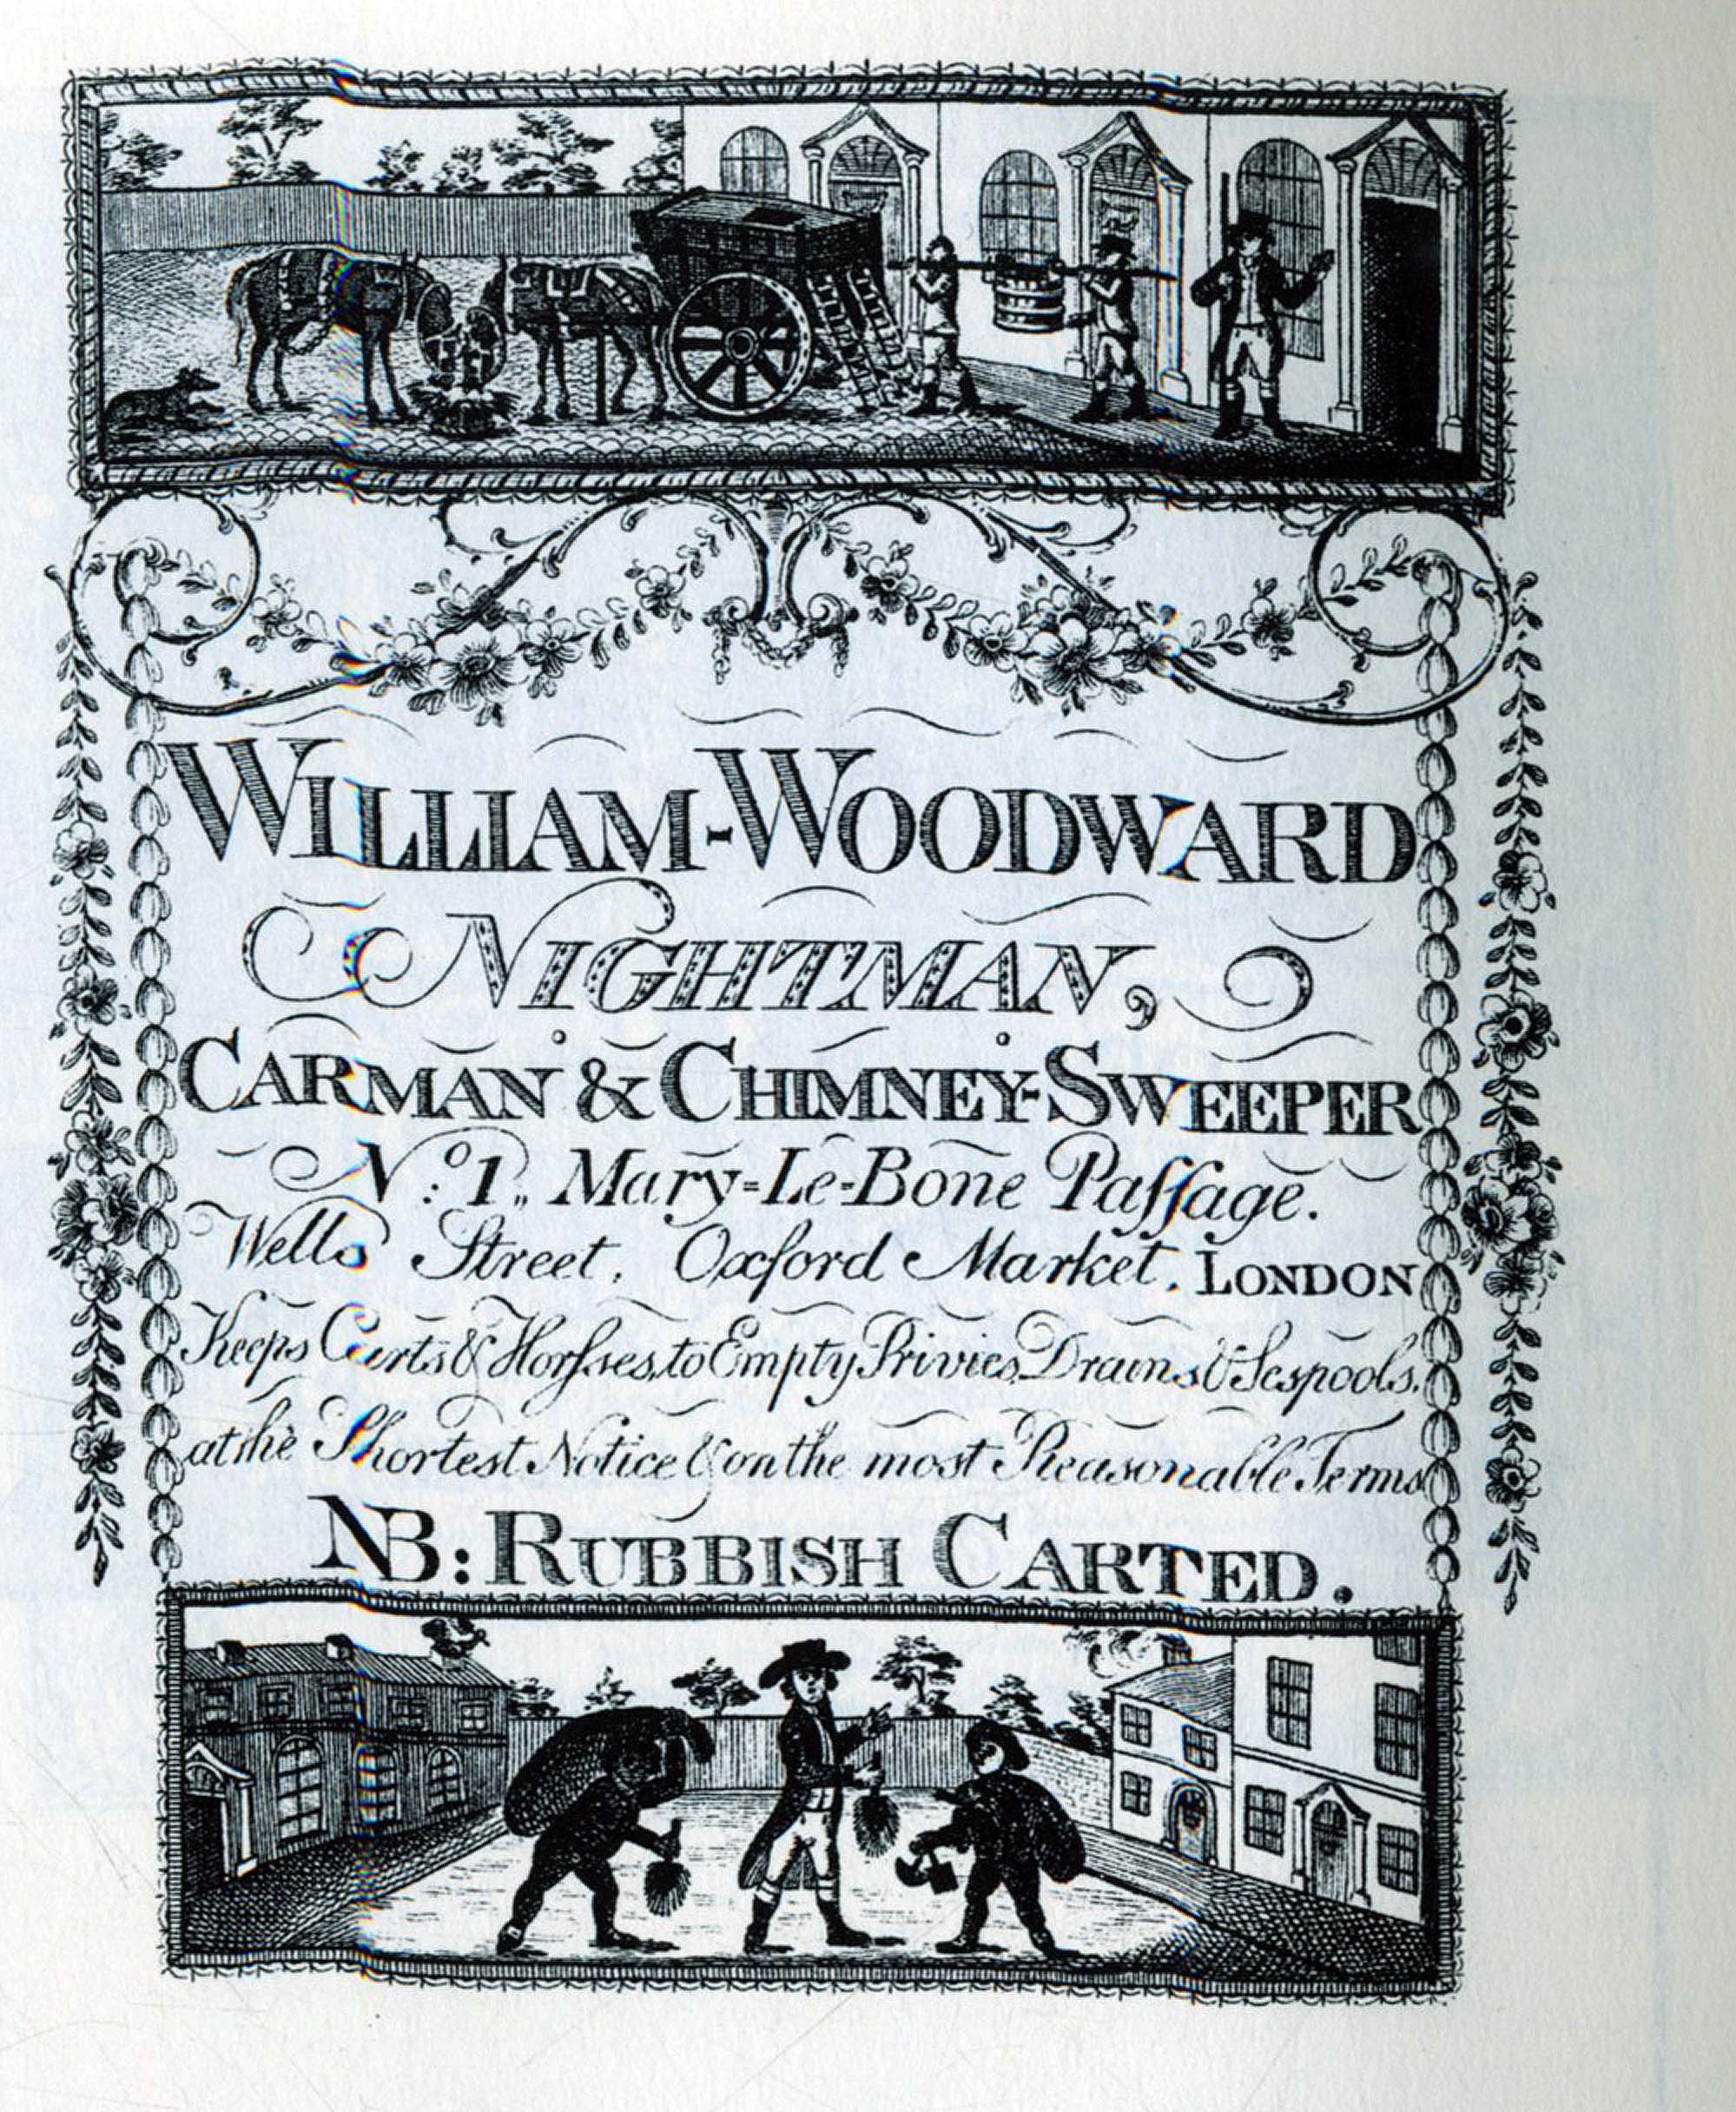 WILLIAM-WOODWARD
NIGHTMAN,
CARMAN & CHIMNEY-SWEEPER
N:o 1,, Mary=Le-Bone Paſsage.
Wells Street, Oxford Market, LONDON
Keeps Carts & Horſses, to Empty Privies, Drains & Sespools,
at the Shortest Notice & on the most Reasonable Terms
NB: RUBBISH CARTED.